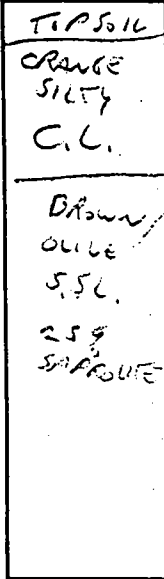 TOPSOIL
ORANGE
SILTY
C.L.
BROWN
OLIVE
S.S.L.
25%
SAPROLITE